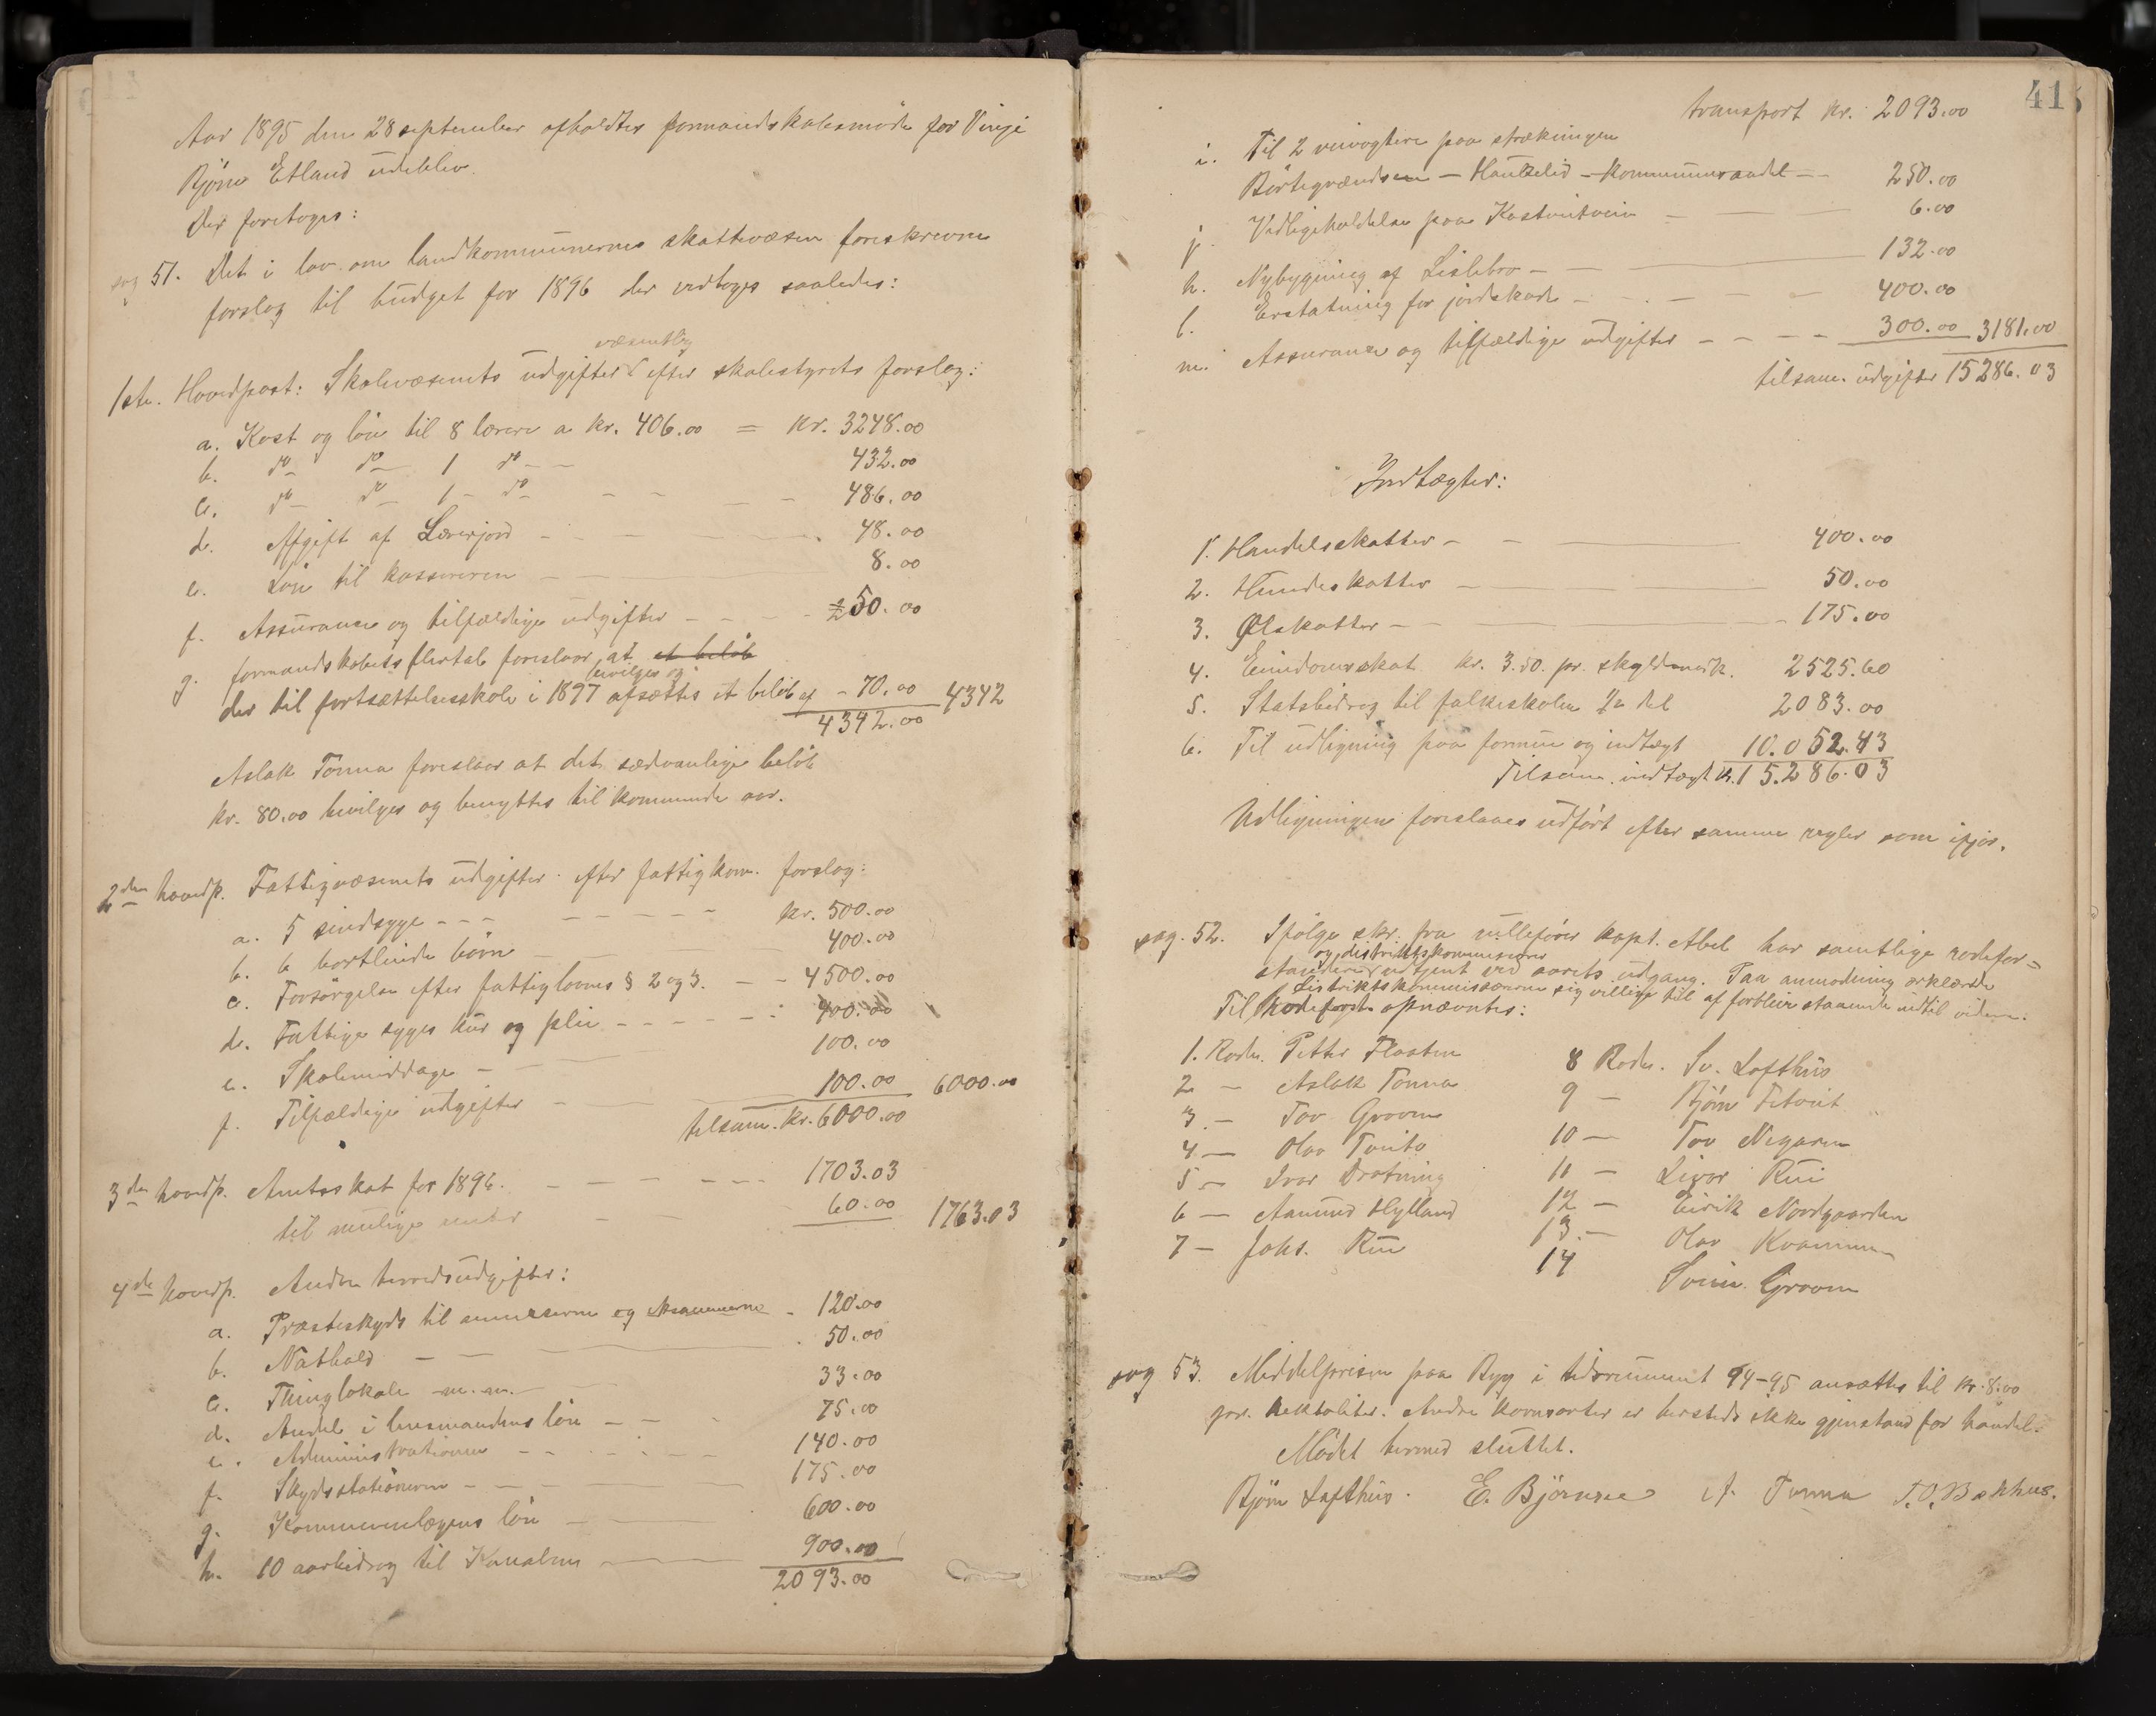 Aar 1895 den 28 september afholdtes formandskabsmöde for Vinje
Björn Etland udeblev.
Der foretoges:
sag 51. Det i lov om landkommunernes skattevæsen foreskrevne
forslag til budget for 1896 der vedtoges saaledes:
væsentlig
1ste. Hovedpost: Skolevæsenets udgifter efter skolestyrets forslag:
a. Kost og lön til 8 lærere a kr. 406.00 = kr. 3248.00
b. do do 1 do - - 432.00
c. do do 1 do - - 486.00
d. Afgift af Lærerjord - - 48.00
e. Lön til kassereren - 8.00
f. Assurance og tilfældige udgifter - - 50.00
g. formandskabets flertal foreslaar, at et beløb
bevilges og
der til fortsættelsesskole i 1897 afsættes et beløb af - 70.00 4342
4342.00
Aslak Tonna foreslaar at det sædvanlige belöb
kr. 80.00 bevilges og benyttes til kommende aar.
2den hovedp. Fattigvæsenets udgifter efter fattigkom. forslag:
a. 5 sindsyge - - - kr. 500.00
b. 6 bortlinde börn - 400.00
c. Forsörgelse efter fattiglovens § 2 og 3. - - 4500.00
d. Fattige syges kur og pleie - - - 400.00
e. Skolemiddage - - 100.00
f. Tilfældige udgifter - 100.00 6000.00
tilsam. kr. 6000.00
3die hovedp. Amtsskat for 1896. - - - 1703.03
til mulige - - 60.00 1763.03
4de hovedp. Andre herredsudgifter:
a. Præsteskyds til annexerne og - 120.00
b. Nathold - - 50.00
c. Thinglokale m. m. - 33.00
d. Andel i lensmandens lön - - 75.00
e. Administrationen - - 140.00
f. Skydsstationerne - - 175.00
g. Kommunelægens lön - 600.00
h. 10 aarsbidrag til Kanalen - 900.00
2093.00
41
transport kr. 2093.00
i. Til 2 veivogtere paa strækningen
Börtegrændsen - Haukelid - kommuneandel - - 250.00
j. Vedligeholdelse paa Kostveitveien - 6.00
k. Nybygning af Lislebro - - 132.00
l. Erstatning for jordskade - - 400.00
m. Assurance og tilfældige udgifter - - - - 300.00 3181.00
tilsam. udgifter 15286.03
Indtægter:
1. Handelsskatter - - 400.00
2. Hundeskatter - 50.00
3. Ølskatter - - 175.00
4. Eiendomsskat kr. 3.50. pr. skyldmark. 2525.60
5. Statsbidrag til folkeskolen 1/2 del 2083.00
6. Til udligning paa formue og indtægt 10.052.43
Tilsam. indtægt kr. 15.286.03
Udligningen foreslaaes udfört efter samme regler som ifjor.
sag. 52. Ifölge skr. fra rullefører kapt. Abel har samtlige rodefor=
og distriktskommissærer
standere udtjent ved aarets udgang. Paa anmodning erklærede
Distriktskommissærerne sig villige til af forblive staaende indtil videre.
Til rodeforst. opnævntes:
1. Rode. Petter Flaaten
2 - Aslak Tonna
3. - Tov Groven
4 - Olav Tveito
5 - Ivar Drotning
6 - Aanund Hylland
7 - Johs. Rui
8 Rode. Sv. Lofthus
9 - Björn Fitveit
10 - Tov Nigaren
11 - Livor Rui
12 - Eirik Nordgaarden
13. - Olav Kvammen
14 Svein Groven
sag 53. Middelprisen paa Byg i tidsrummet 94-95 ansættes til kr. 8.00
pr. hektoliter. Andre kornsorter er hersteds ikke gjenstand for handel.
Mödet hermed sluttet.
Björn Lofthus. E. Björnsen A. Tonna T. O. Bakhus.